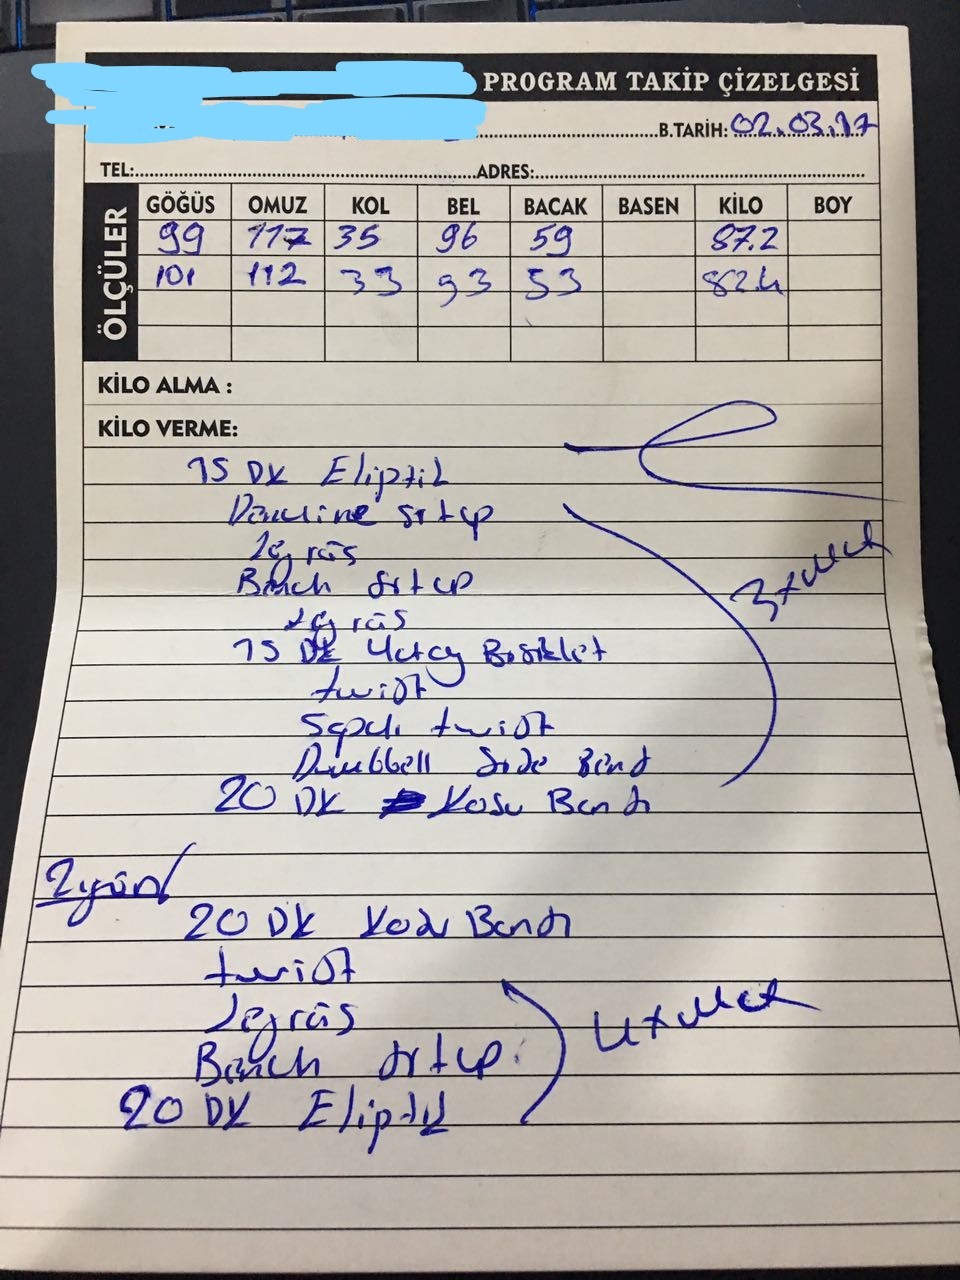 PROGRAM TAKİP ÇİZELGESİ
B.TARİH: 02.03.17
TEL: ADRES:
ÖLÇÜLER
GÖĞÜS OMUZ KOL BEL BACAK BASEN KİLO BOY
99 117 35 96 59 87.2
101 112 33 93 53 82.4
KİLO ALMA :
KİLO VERME:
15 DK Eliptik
sıtup
Legrais
Bench sıtup
Legrais
15 DK Yatay Bisiklet
twist
Sopalı twist
Dumbbell Side Bend
20 DK Kosu Bandı
3x
2 gün
20 DK Kosu Bandı
twist
Legrais
Bench sıtup
20 DK Eliptik
4x